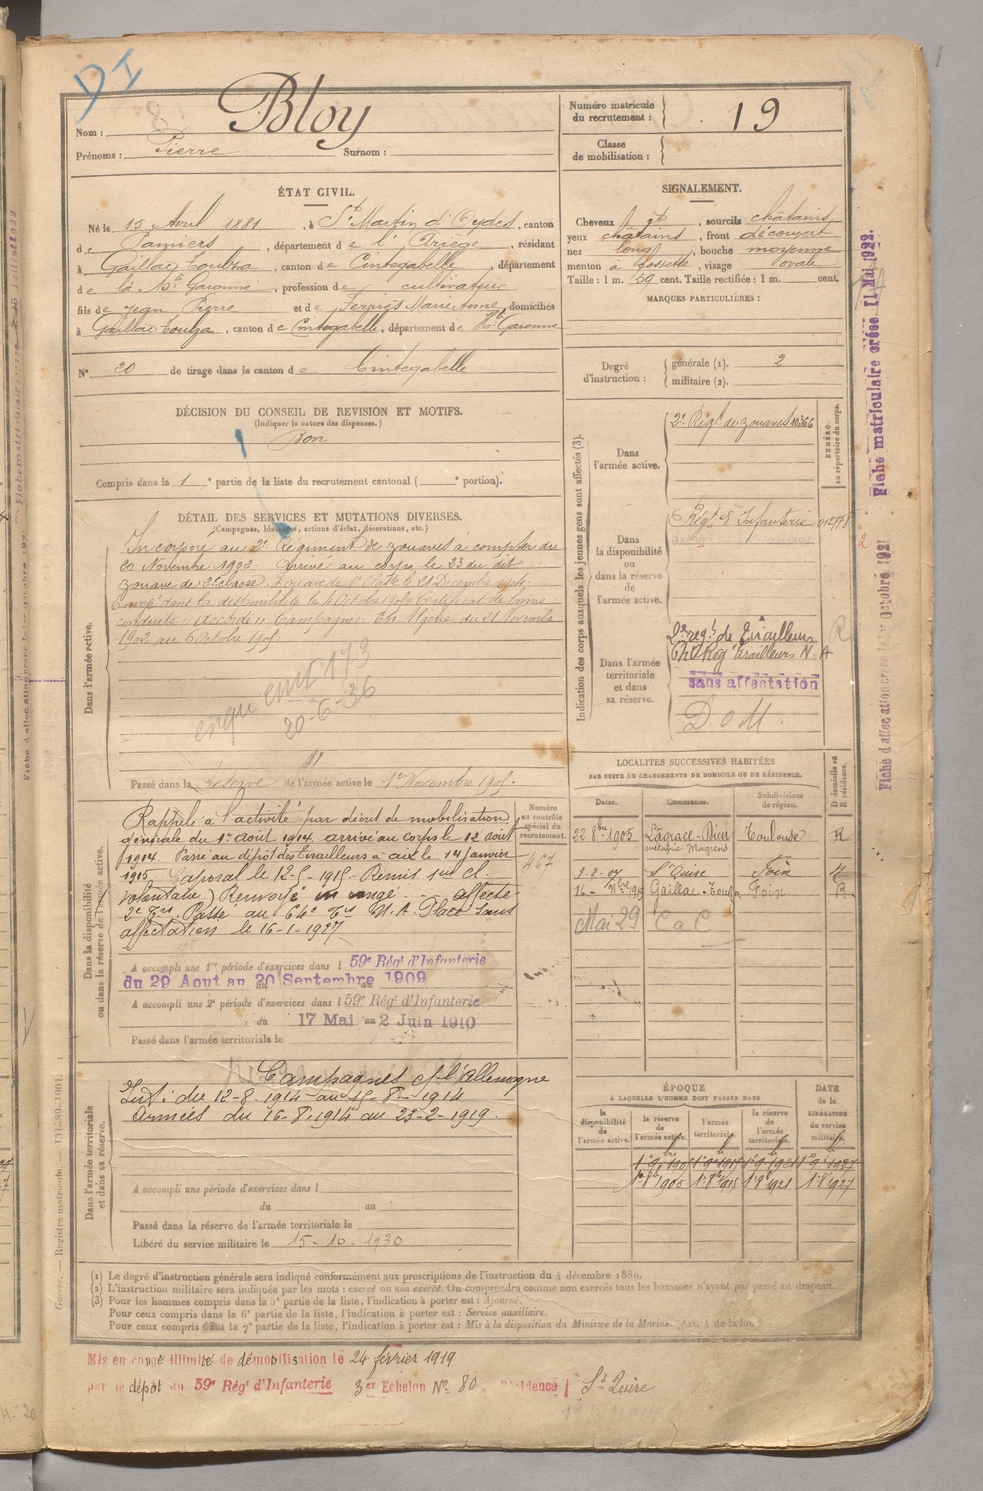 DI
Nom : Bloy
Prénoms : Pierre Surnom :
Numéro matricule du recrutement : 19
Classe de mobilisation :
ÉTAT CIVIL.
Né le 15 Avril 1881, à St Martin d'Oydes, canton
de Pamiers, département de l'Ariège, résidant
à Gaillac-Toulza, canton de Cintegabelle, département
de la Hte Garonne, profession de cultivateur
fils de Jean Pierre et de Marie Anne, domiciliés
à Gaillac Toulza, canton de Cintegabelle, département de Hte Garonne
N° 20 de tirage dans le canton de Cintegabelle
SIGNALEMENT.
Cheveux , sourcils châtains
yeux châtains, front découvert
nez long, bouche moyenne
menton à fossette, visage ovale
Taille : 1 m. 59 cent. Taille rectifiée : 1 m. cent.
MARQUES PARTICULIÈRES :
Degré d'instruction : générale (1). 2
militaire (2).
DÉCISION DU CONSEIL DE REVISION ET MOTIFS.
(Indiquer la nature des dispenses.)
Bon
Compris dans la 1e partie de la liste du recrutement cantonal ( e portion).
DÉTAIL DES SERVICES ET MUTATIONS DIVERSES.
(Campagnes, blessures, actions d'éclat, décorations, etc.)
Dans l'armée active.
Incorporé au 2e Régiment de zouaves à compter du
Novembre 1902. Arrivé au corps le 23 du dit
zouave de 2e classe. Zouave de 1e Classe le 21 Décembre
Envoyé dans la disponibilité le 4 Octobre 1905 Certificat de bonne
conduite : Accordé. Campagnes : En Algérie du 21 Novembre
1902 au 6 Octobre 1905
20-6-36
Passé dans la réserve de l'armée active le 1er Novembre 1905.
Dans la disponibilité ou dans la réserve de l'armée active.
Rappelé à l'activité par décret de mobilisation
générale du 1er Août 1914. arrivé au Corps le 12 août
1914. Passé au dépôt des Tirailleurs à aix le 14 janvier
1915. Caporal le 12-5-1915. Remis 1er cl.
volontaire) Renvoyé in congé. affecté
2e Trs. Passé au 64e Trs N.A. Placé sans
affectation le 16-1-1927
Numéro au contrôle spécial du recrutement.
467
A accompli une 1re période d'exercices dans l 59e Régt d'Infanterie
du 29 Aout au 20 Septembre 1909
A accompli une 2e période d'exercices dans l 59e Régt d'Infanterie
du 17 Mai au 2 Juin 1910
Passé dans l'armée territoriale le
Dans l'armée territoriale et dans sa réserve.
Campagnes c/ l'allemagne
Int : du 12-8-1914 au 15-8-1914
armées du 16-8-1914 au 23-2-1919.
A accompli une période d'exercices dans l
du au
Passé dans la réserve de l'armée territoriale le
Libéré du service militaire le 15-10-1930
Indication des corps auxquels les jeunes gens sont affectés (3).
Dans l'armée active.
2e Régt de zouaves 10366
NUMÉRO au répertoire du corps.
Dans la disponibilité ou dans la réserve de l'armée active.
Régt d'Infanterie
Dans l'armée territoriale et dans sa réserve.
2e régt de Tirailleurs R
64e Rég Tirailleurs N.A
sans affectation
DoM.
LOCALITES SUCCESSIVES HABITÉES
PAR SUITE DE CHANGEMENTS DE DOMICILE OU DE RÉSIDENCE.
Dates. Communes. Subdivisions de région. D domicile ou R résidence.
22 8bre 1905 Lagrace-Dieu Toulouse R
métairie Magrens
2-8-07 St Quirc Foix R
16- Nbre Gaillac-Toulza Foix R
Mai 29 CaC
ÉPOQUE
À LAQUELLE L'HOMME DOIT PASSER DANS
la disponibilité de l'armée active. la réserve de l'armée active. l'armée territoriale. la réserve de l'armée territoriale. DATE de la LIBÉRATION du service militaire.
1er 8bre 1905 1er 8bre 1918 1er 8bre 1921 1er 8 1927
(1) Le degré d'instruction générale sera indiqué conformément aux prescriptions de l'instruction du 4 décembre 1889.
(2) L'instruction militaire sera indiquée par les mots : exercé ou non exercé. On comprendra comme non exercés tous les hommes n'ayant pas passé au drapeau.
(3) Pour les hommes compris dans la 5e partie de la liste, l'indication à porter est : Ajourné.
Pour ceux compris dans la 6e partie de la liste, l'indication à porter est : Service auxiliaire.
Pour ceux compris dans la 7e partie de la liste, l'indication à porter est : Mis à la disposition du Ministre de la Marine.
Mis en congé illimité de démobilisation le 24 février 1919
par le dépôt du 59e Régt d'Infanterie 3e Echelon No 80 Résidence St Quirc
Fiche matriculaire créée 11 Mai 1922.
Fiche d'affectation créée le Octobre 1921